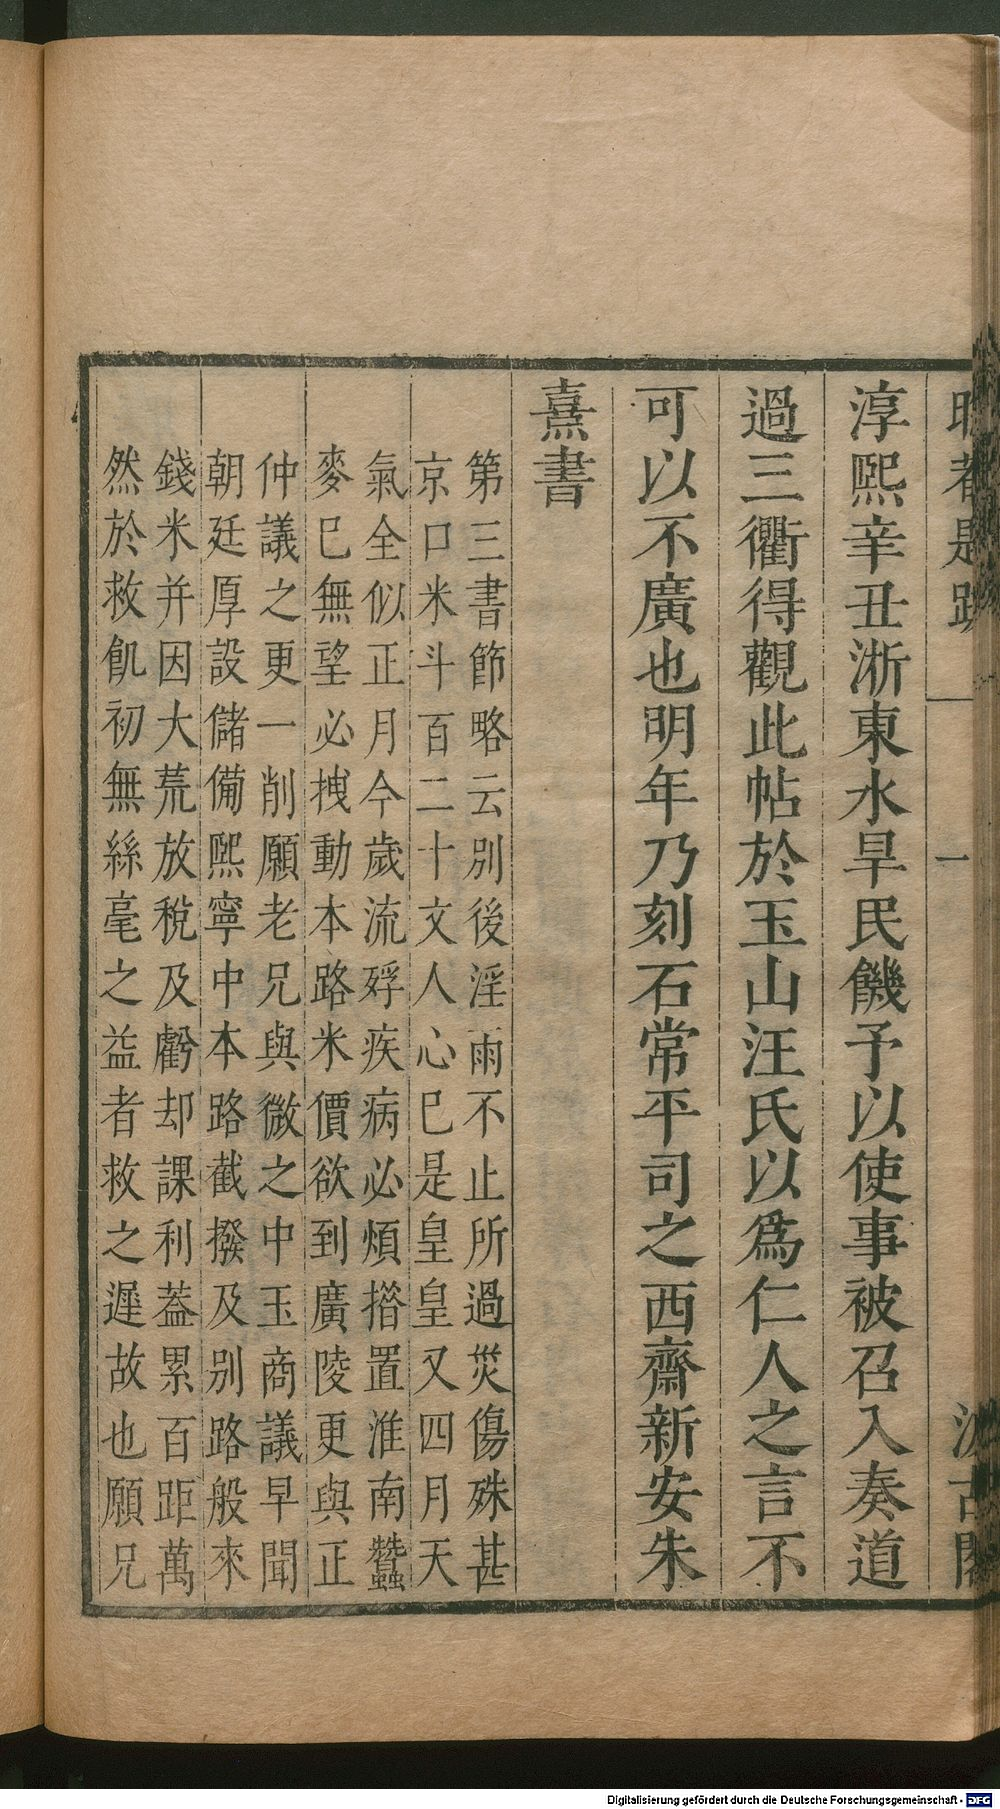 淳熙辛丑淅東水旱民饑予以使事被召入奏道
過三衢得觀此帖於玉山汪氏以爲仁人之言不
可以不廣也明年乃刻石常平司之西齋新安朱
熹書
第三書節略云別後淫雨不止所過災傷殊甚
京口米斗百二十文人心已是皇皇又四月天
氣全似正月今歲流殍疾病必煩措置淮南蠶
麥已無望必拽動本路米價欲到廣陵更與正
仲議之更一削願老兄與微之中玉商議早聞
朝廷厚設儲備熙寧中本路截撥及別路般來
錢米并因大荒放稅及虧却課利蓋累百距萬
然於救飢初無絲毫之益者救之遲故也願兄
一
Digitalisierung gefördert durch die Deutsche Forschungsgemeinschaft - DFG